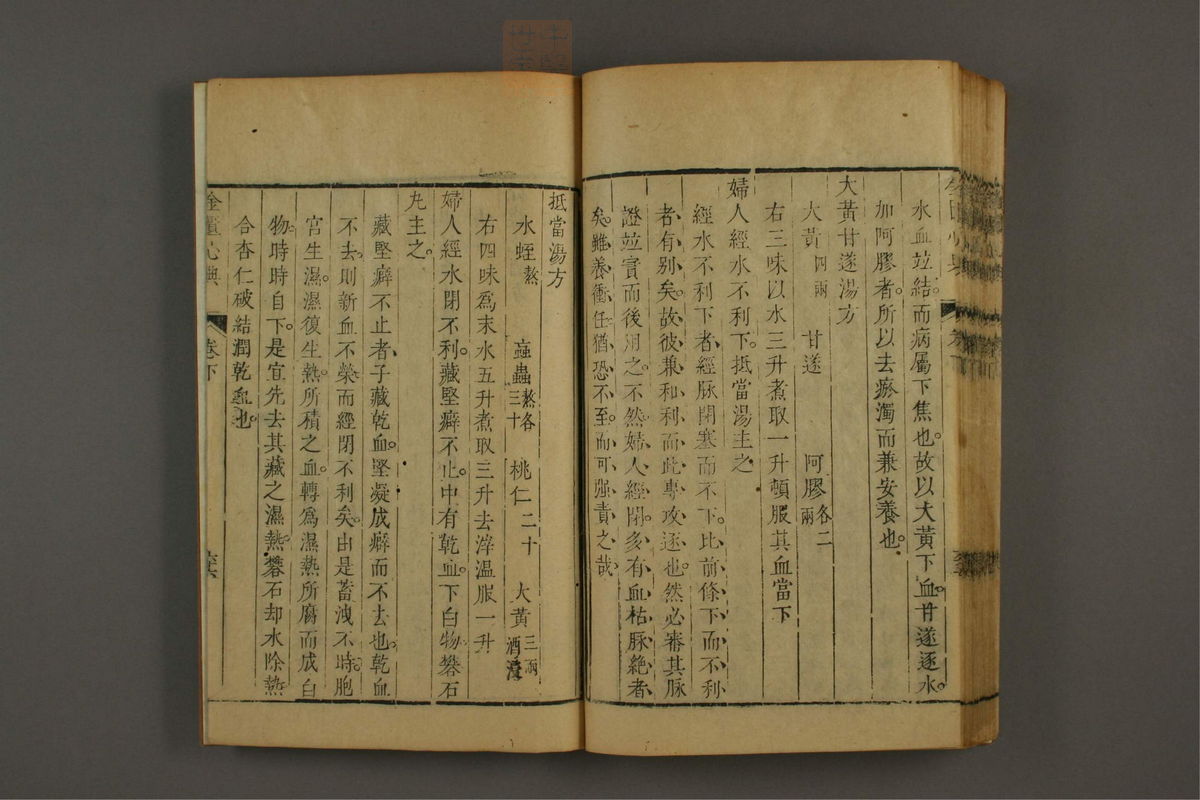 水血竝結而病屬下焦也故以大黃下血甘遂逐水
加阿膠者所以去瘀濁而兼安養也
大黃甘遂湯方
大黃四兩 甘遂 阿膠各二兩
右三味以水三升煮取一升頓服其血當下
婦人經水不利下抵當湯主之
經水不利下者經脉閉塞而不下比前條下而不利
者有别矣故彼兼和利而此專攻逐也然必審其脉
證竝實而後用之不然婦人經閉多有血枯脉絶者
矣雖養衝任猶恐不至而可强責之哉
抵當湯方
水蛭熬 䖟蟲熬各三十 桃仁二十 大黃三兩酒浸
右四味爲末水五升煮取三升去滓溫服一升
婦人經水閉不利藏堅癖不止中有乾血下白物礬石
丸主之
藏堅癖不止者子藏乾血堅凝成癖而不去也乾血
不去則新血不榮而經閉不利矣由是蓄洩不時胞
宮生濕濕復生熱所積之血轉爲濕熱所腐而成白
物時時自下是宜先去其藏之濕熱礬石却水除熱
合杏仁破結潤乾血也
金匱心典 卷下